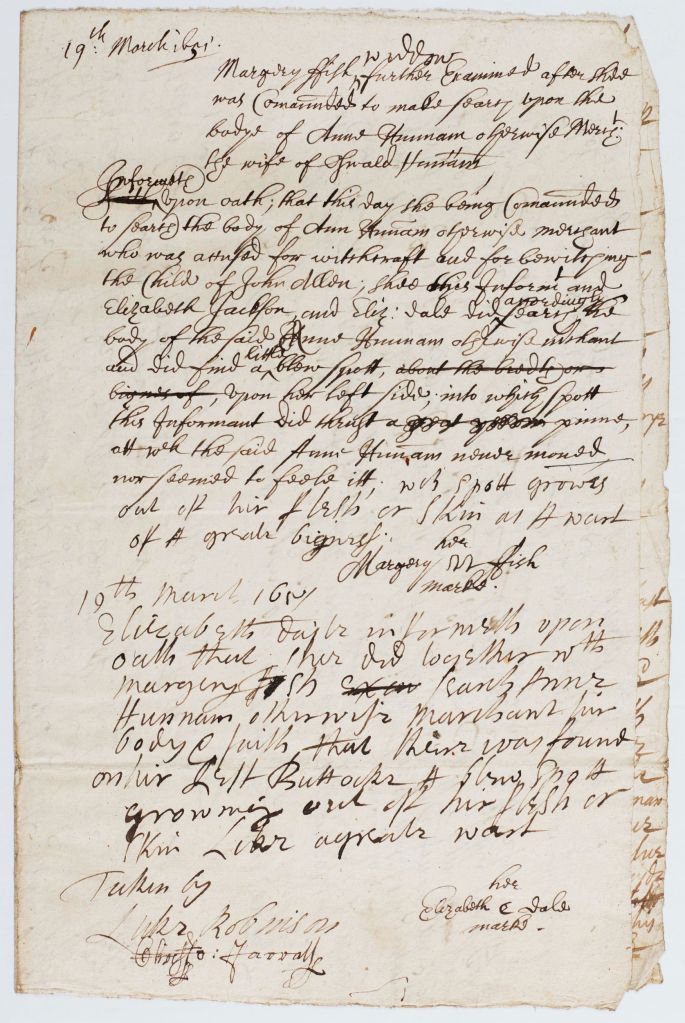 19th March 1651.
Margery ffish widdow further Examined after shee
was Comaunded to make search upon the
bodye of Anne Hunnam otherwise March:
the wife of Oswald Hunnam
Informeth
upon oath, that this day she being Comaunded
to search the body of Ann Hunnam otherwise merchant
who was accused for witchcraft and for bewitching
the Child of John Allen; shee this Informt and
Elizabeth Jackson, and Eliz: dale did accordingly search the
body of the said Anne Hunnam otherwise mrchant
and did find a little blew spott, about the bredth or
bignes of, upon her left side: into which spott
this Informant did thrust a great pinne,
att wch the said Anne Hunnam never moved
nor seemed to feele itt, wch spott growes
out of hir flesh or skin as A wart
of A greate bigness.
her
Margery m ffish
marke.
19th march 1651
Elizabeth daile informeth upon
oath that shee did together wth
margery ffish search Anne
Hunnam otherwise marchant hir
body & saith that there was found
on hir Left Buttocke A blew spott
growing out of hir flesh or
skin Like a greate wart
Taken by
her
Elizabeth e dale
marke.
Luke Robinson